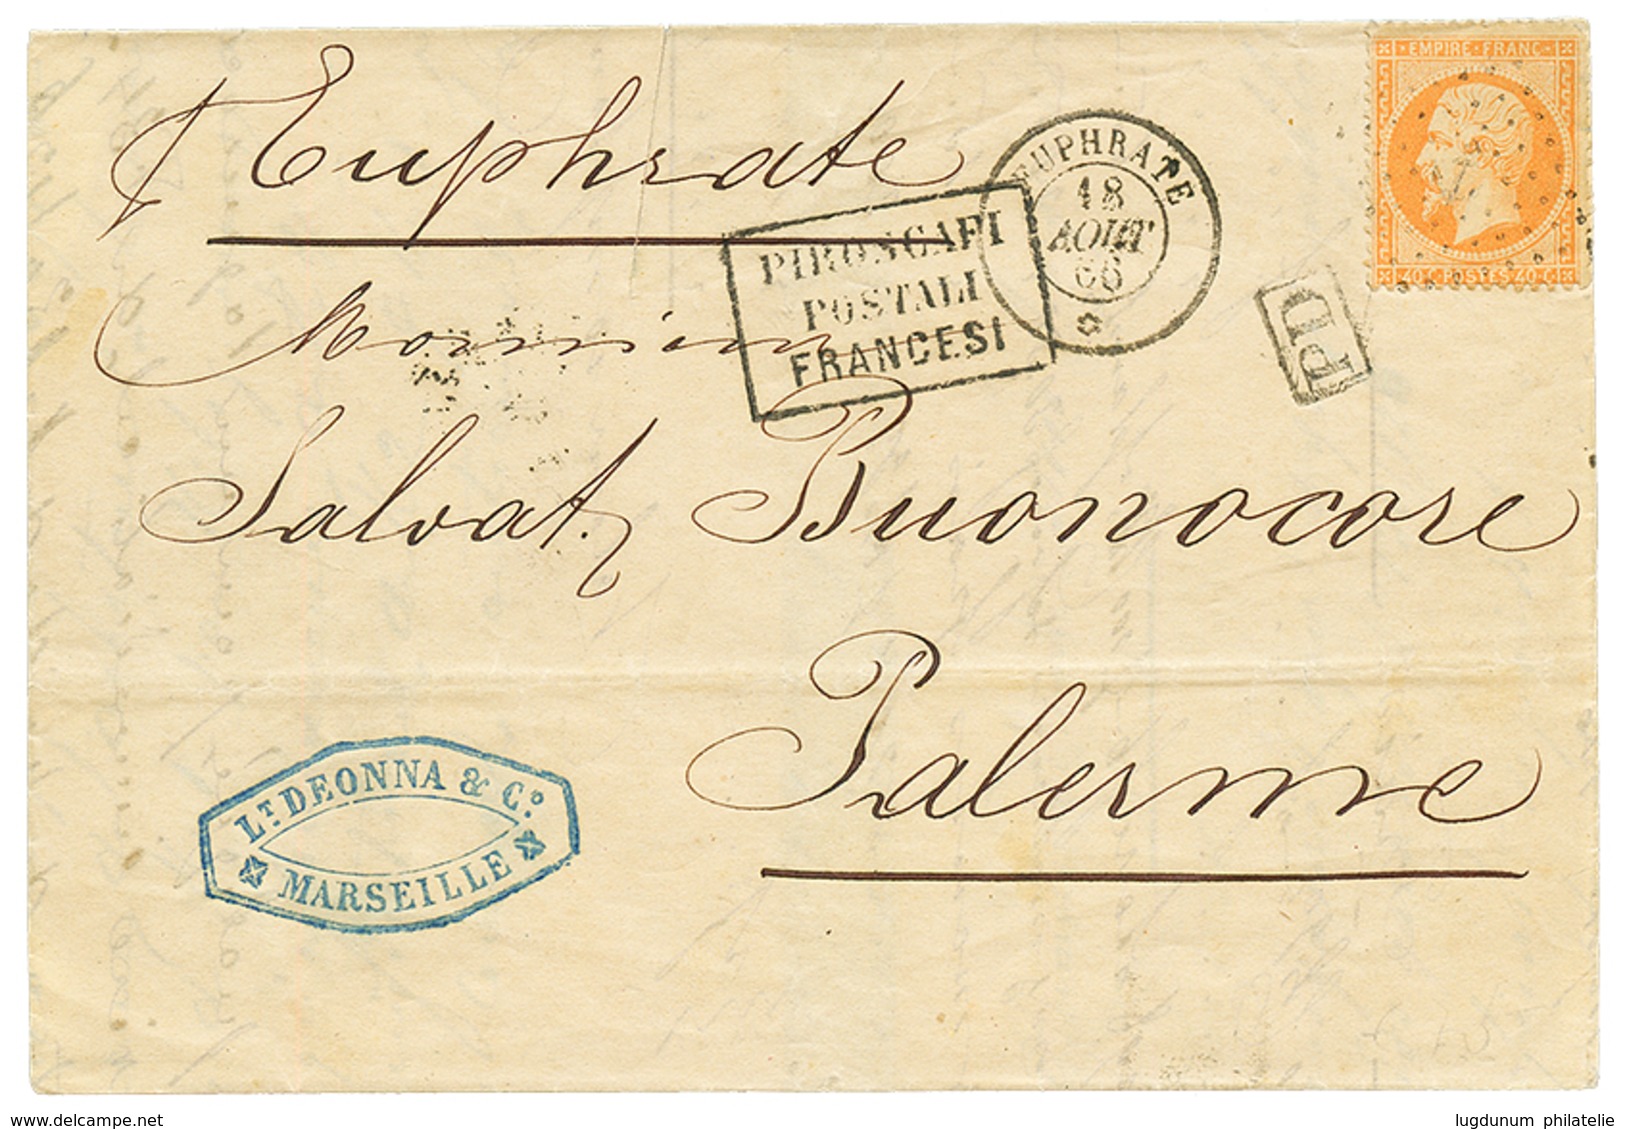 EMPIRE FRANC
Euphrate
EUPHRATE
18
AOUT
66
PIROSCAFI
POSTALI
FRANCESI
40 C POSTES 40 C
PD
Monsieur
Salvat. Buonocore
Palerme
LT. DEONNA & Co.
MARSEILLE
delcampe.net
lugdunum philatelie